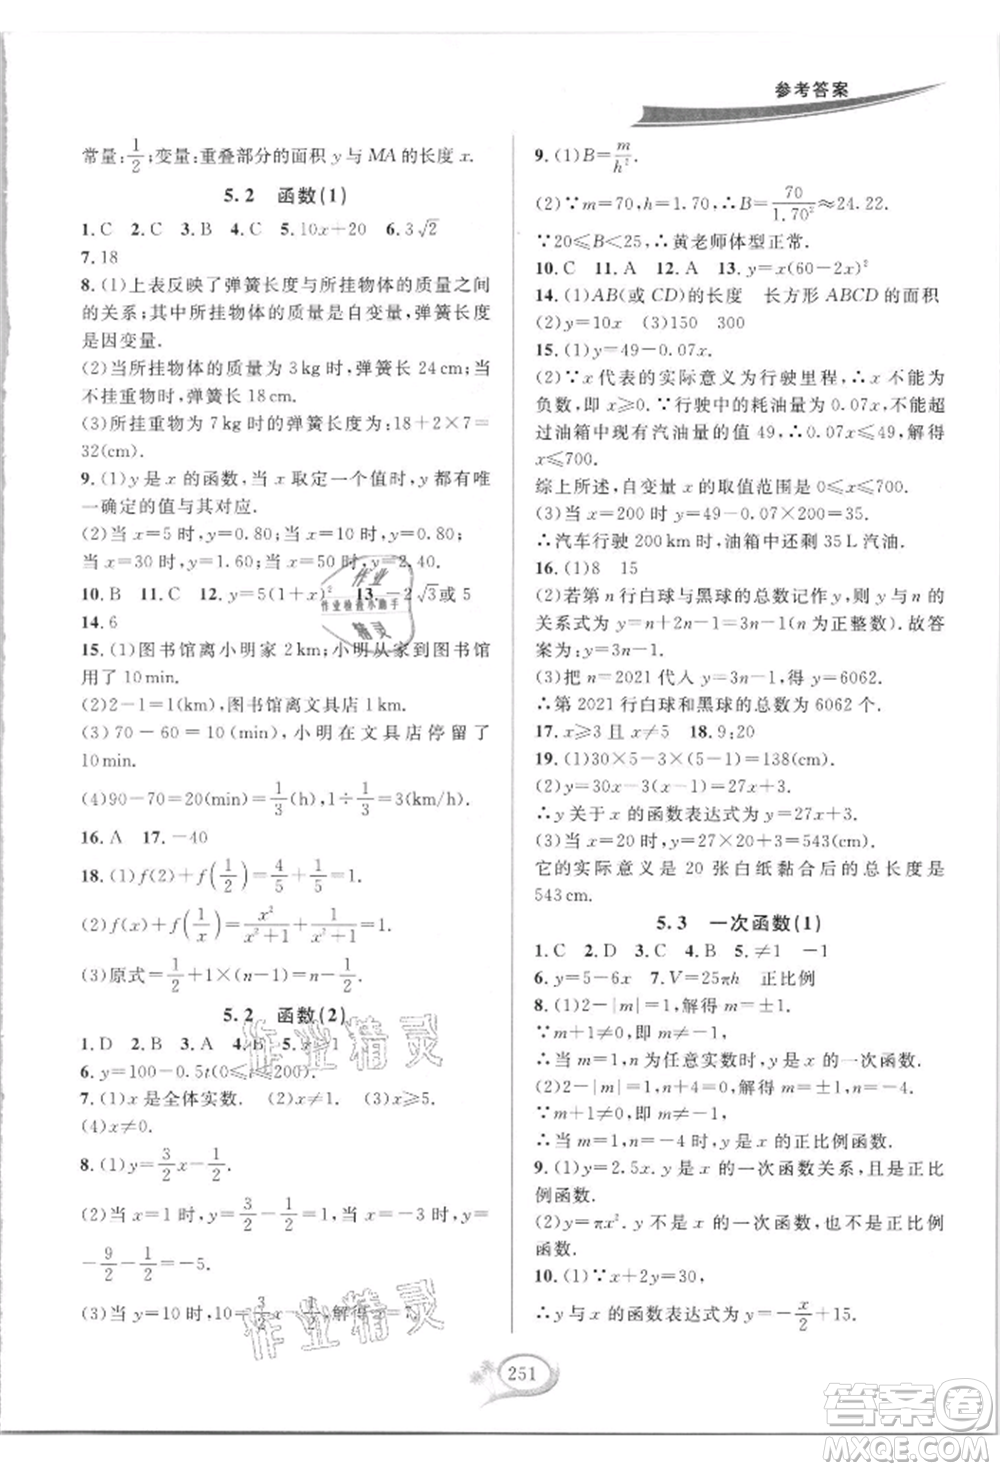 参考答案
常量:1/2;变量:重叠部分的面积 y 与 MA 的长度 x.
5.2 函数(1)
1.C 2.D 3.C 4.C 5.10x+20 6.3√2
7.18
8.(1)上表反映了弹簧长度与所挂物体的质量之间
的关系;其中所挂物体的质量是自变量,弹簧长度
是因变量.
(2)当所挂物体的质量为 3 kg 时,弹簧长 24 cm;当
不挂重物时,弹簧长 18 cm.
(3)所挂重物为 7 kg 时的弹簧长度为:18+2×7=
32(cm).
9.(1)y 是 x 的函数,当 x 取定一个值时,y 都有唯
一确定的值与其对应.
(2)当 x=5 时,y=0.80;当 x=10 时,y=0.80;
当 x=30 时,y=1.60;当 x=50 时,y=2.40.
10.B 11.C 12.y=5(1+x)² 13.-2√3或 5
14.6
15.(1)图书馆离小明家 2 km;小明从家到图书馆
用了 10 min.
(2)2-1=1(km),图书馆离文具店 1 km.
(3)70-60=10(min),小明在文具店停留了
10 min.
(4)90-70=20(min)=1/3(h),1÷1/3=3(km/h).
16.A 17.-40
18.(1)f(2)+f(1/2)=4/5+1/5=1.
(2)f(x)+f(1/x)=x²/(x²+1)+1/(x²+1)=1.
(3)原式=1/2+1×(n-1)=n-1/2.
5.2 函数(2)
1.D 2.B 3.A 4.B 5.x≥1
6.y=100-0.5t(0≤t≤200).
7.(1)x 是全体实数. (2)x≠1. (3)x≥5.
(4)x≠0.
8.(1)y=3/2x-1/2.
(2)当 x=1 时,y=3/2-1/2=1,当 x=-3 时,y=
-9/2-1/2=-5.
(3)当 y=10 时,10=3/2x-1/2,解得 x=7.
9.(1)B=m/h².
(2)∵m=70,h=1.70,∴B=70/1.70²≈24.22.
∵20≤B<25,∴黄老师体型正常.
10.C 11.A 12.A 13.y=x(60-2x)²
14.(1)AB(或 CD)的长度 长方形 ABCD 的面积
(2)y=10x (3)150 300
15.(1)y=49-0.07x.
(2)∵x 代表的实际意义为行驶里程,∴x 不能为
负数,即 x≥0.∵行驶中的耗油量为 0.07x,不能超
过油箱中现有汽油量的值 49,∴0.07x≤49,解得
x≤700.
综上所述,自变量 x 的取值范围是 0≤x≤700.
(3)当 x=200 时 y=49-0.07×200=35.
∴汽车行驶 200 km 时,油箱中还剩 35 L 汽油.
16.(1)8 15
(2)若第 n 行白球与黑球的总数记作 y,则 y 与 n
的关系式为 y=n+2n-1=3n-1(n 为正整数).故答
案为:y=3n-1.
(3)把 n=2021 代入 y=3n-1,得 y=6062.
∴第 2021 行白球和黑球的总数为 6062 个.
17.x≥3 且 x≠5 18.9:20
19.(1)30×5-3×(5-1)=138(cm).
(2)y=30x-3(x-1)=27x+3.
∴y 关于 x 的函数表达式为 y=27x+3.
(3)当 x=20 时,y=27×20+3=543(cm).
它的实际意义是 20 张白纸黏合后的总长度是
543 cm.
5.3 一次函数(1)
1.C 2.D 3.C 4.B 5.≠1 -1
6.y=5-6x 7.V=25πh 正比例
8.(1)2-|m|=1,解得 m=±1.
∵m+1≠0,即 m≠-1,
∴当 m=1,n 为任意实数时,y 是 x 的一次函数.
(2)2-|m|=1,n+4=0,解得 m=±1,n=-4.
∵m+1≠0,即 m≠-1,
∴当 m=1,n=-4 时,y 是 x 的正比例函数.
9.(1)y=2.5x.y 是 x 的一次函数关系,且是正比
例函数.
(2)y=πx².y 不是 x 的一次函数,也不是正比例
函数.
10.(1)∵x+2y=30,
∴y 与 x 的函数表达式为 y=-x/2+15.
251
作业
作业检查小助手
精灵
作业精灵
作业精灵
答案卷
MXQE.COM